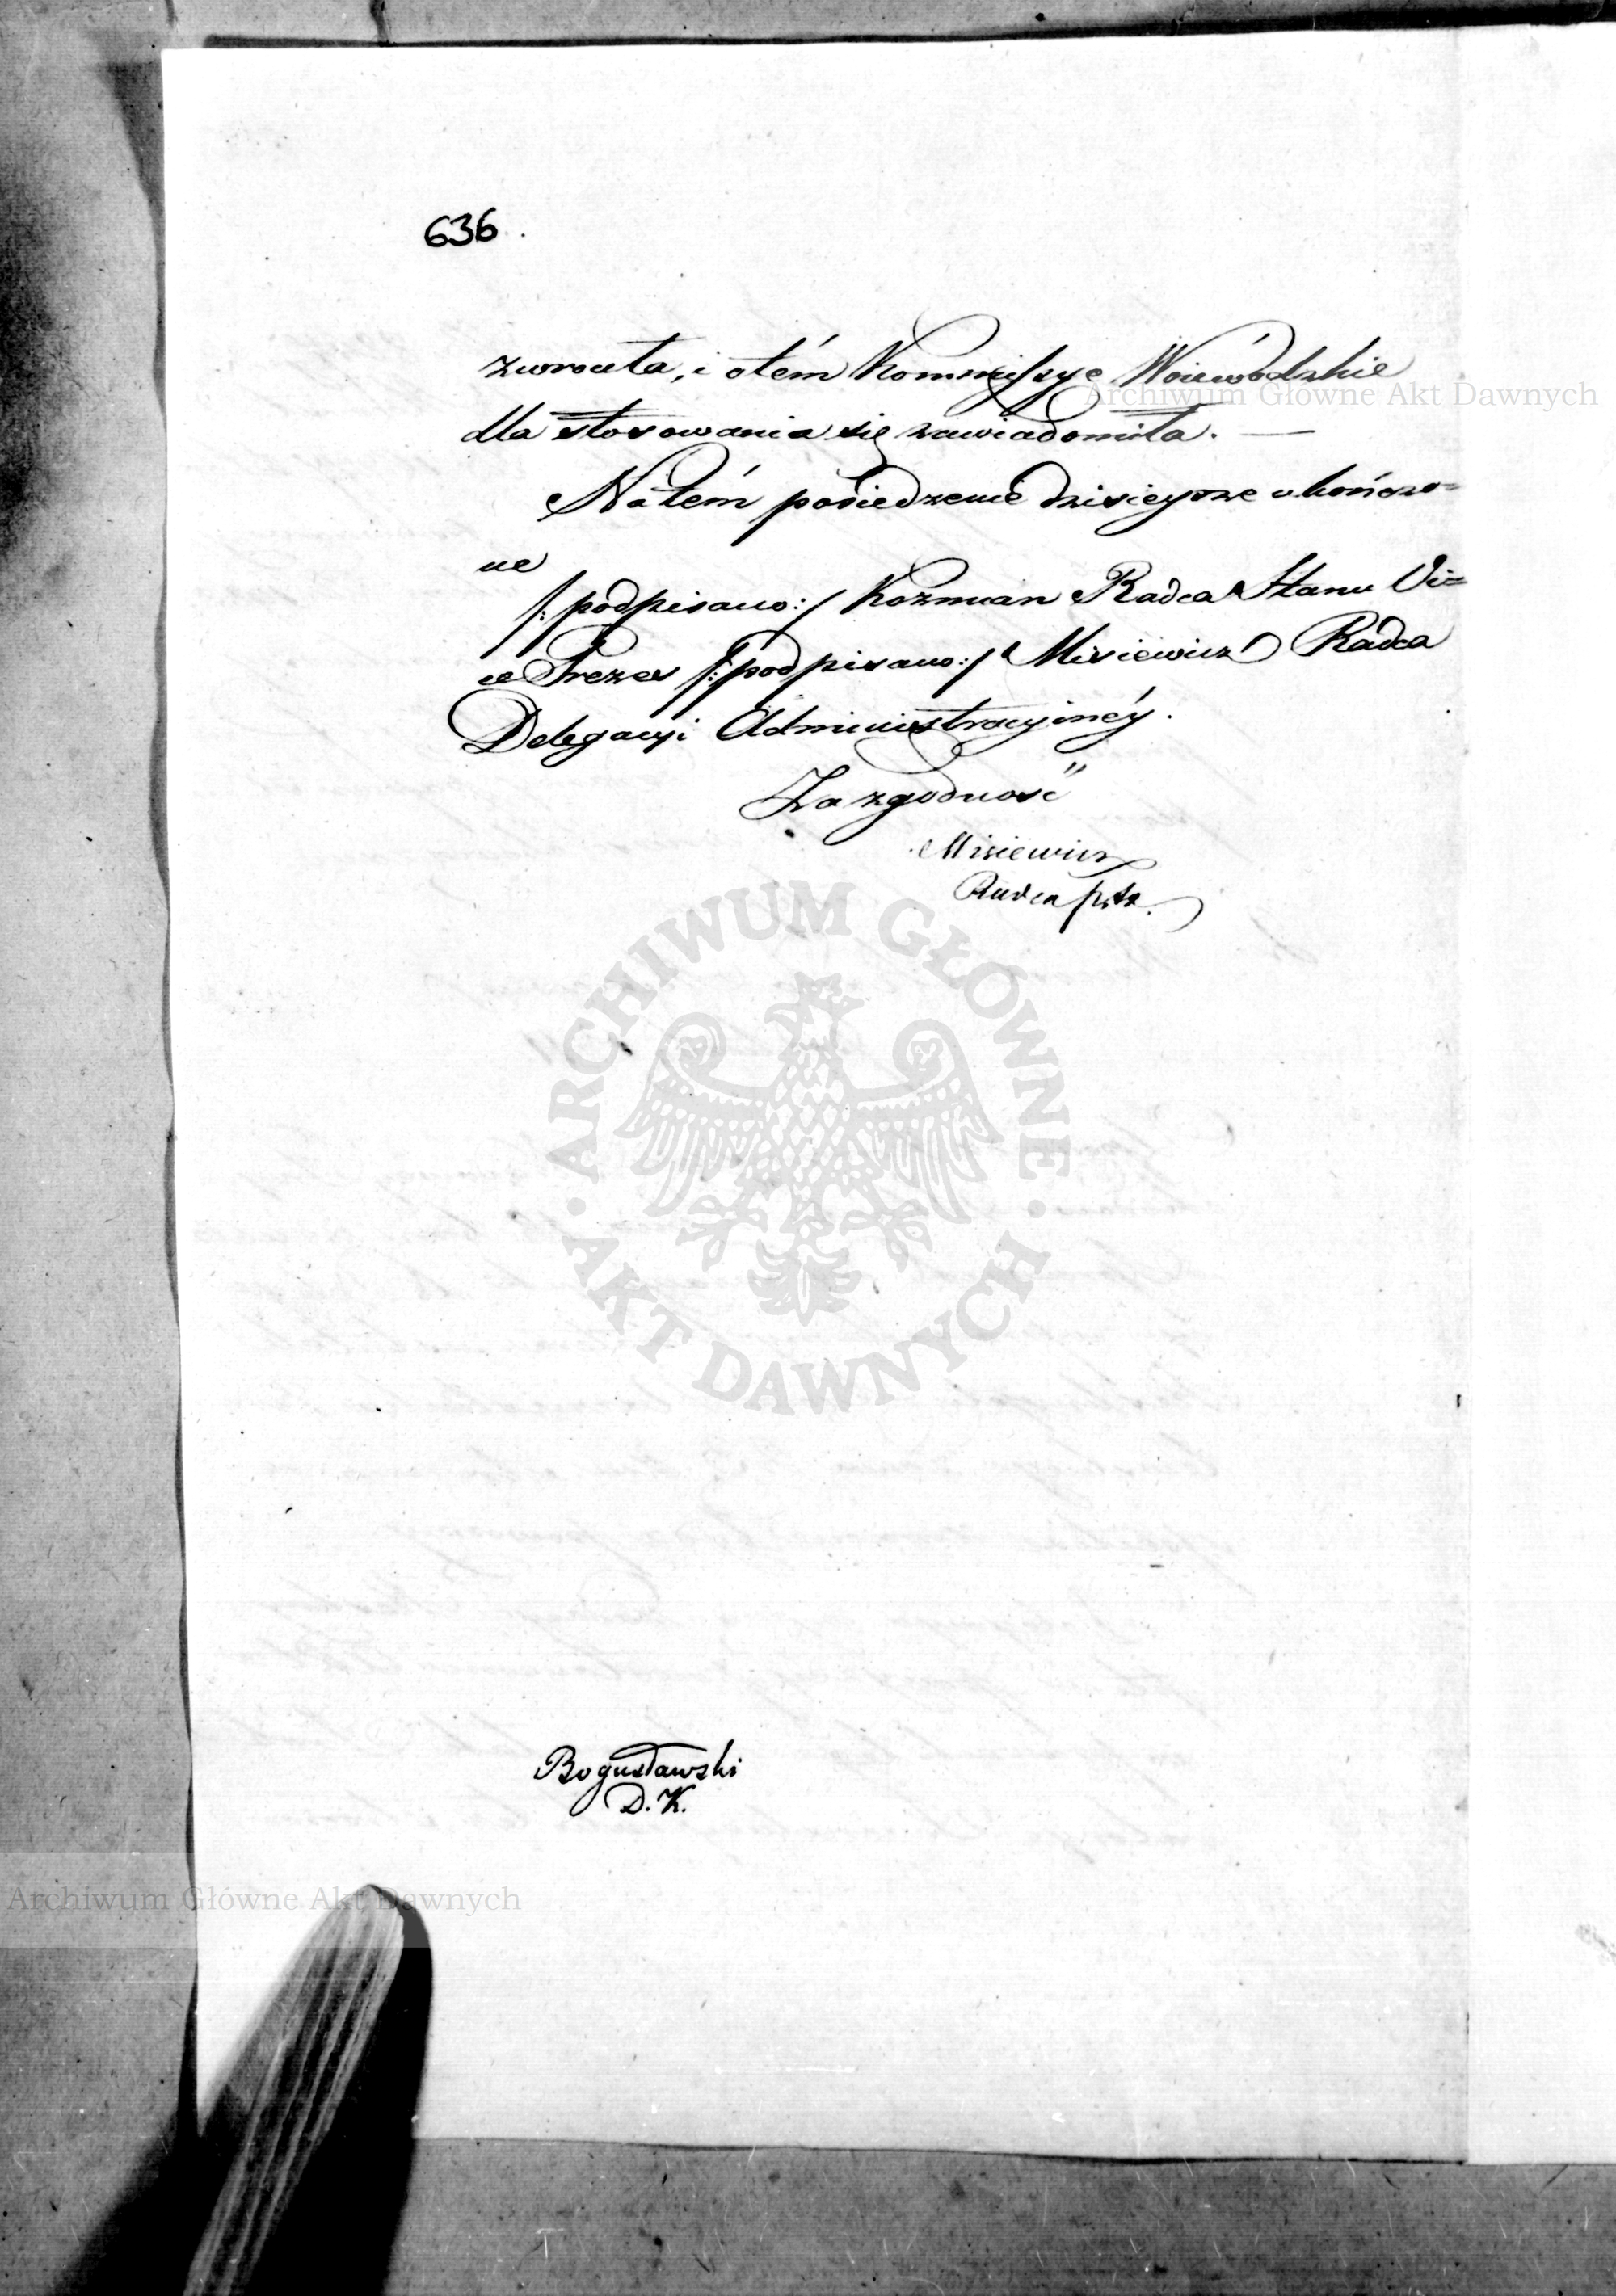 636.
zwrócéła, i o tém Kommissye Woiewódzkie
dla stosowania się zawiadomiła. —
Na tém posiedzenie dzisieysze ukończo=
ne
/: podpisano :/ Kozmian Radca Stanu Vi=
ce Prezes /: podpisano :/ Misiewicz Radca
Delegacyi Administracyinéy.
Za zgodność
Misiewicz
Radca
Bogusławski
D. K.
Archiwum Główne Akt Dawnych
ARCHIWUM GŁÓWNE AKT DAWNYCH
Archiwum Główne Akt Dawnych